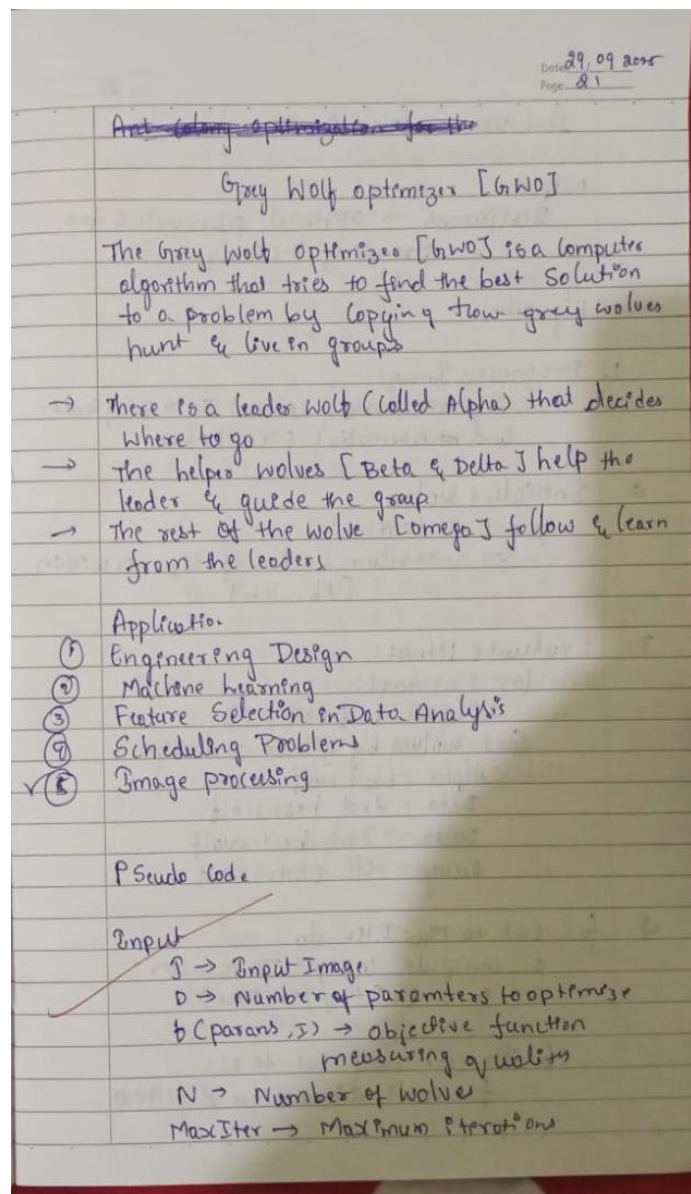 Date 29, 09 2025
Page 21
Ant colony optimization for the
Grey Wolf optimizer [GWO]
The Grey Wolf optimizer [GWO] is a computer
algorithm that tries to find the best Solution
to a problem by Copying how grey wolves
hunt & live in groups
→ There is a leader wolf (Called Alpha) that decides
where to go
→ The helper wolves [Beta & Delta] help the
leader & guide the group
→ The rest of the wolve [omega] follow & learn
from the leaders
Application
① Engineering Design
② Machine Learning
③ Feature Selection in Data Analysis
④ Scheduling Problems
⑤ Image processing
PSeudo Code
Input
I → Input Image
D → Number of paramters to optimize
f(params, I) → objective function
measuring quality
N → Number of wolves
MaxIter → Maximum iterations